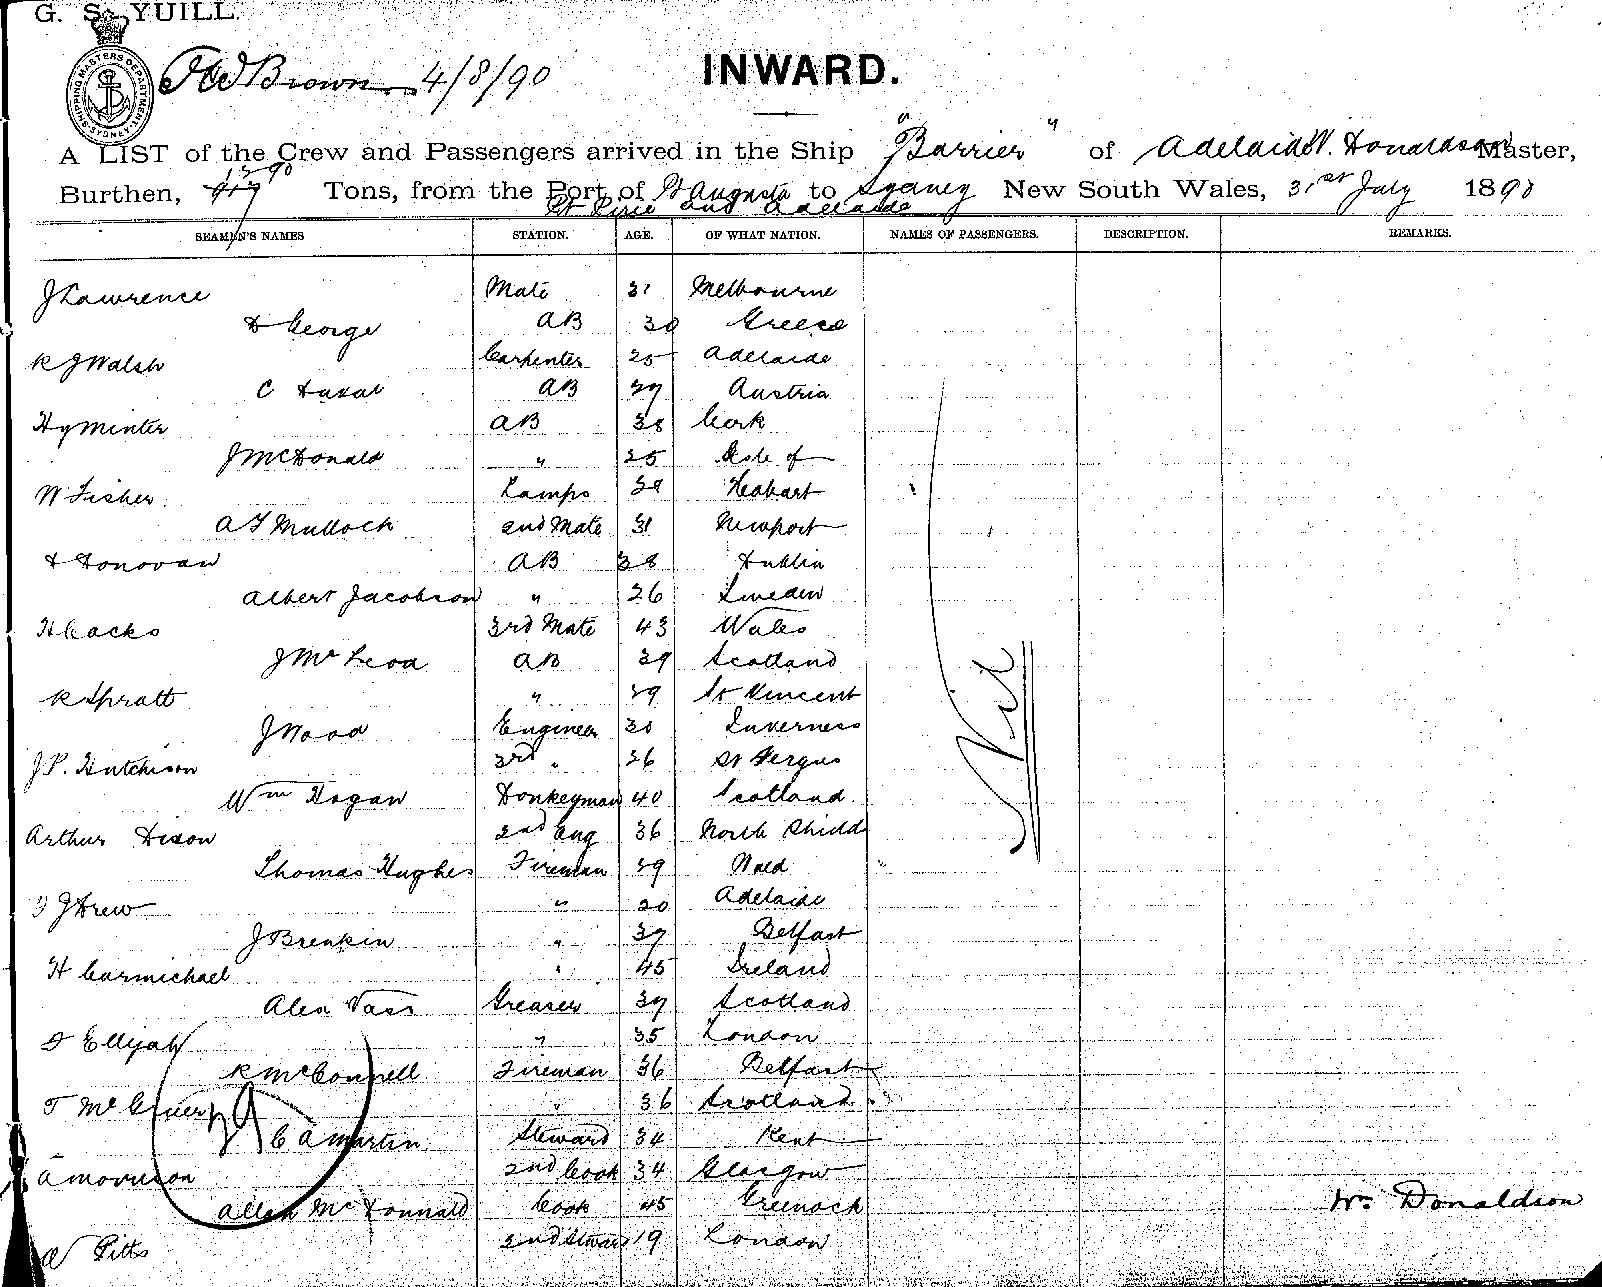 G. S. YUILL.
SHIPPING MASTERS DEPARTMENT SYDNEY
Brown 4/8/90
INWARD.
A LIST of the Crew and Passengers arrived in the Ship "Barrier" of Adelaide W. Donaldson Master,
Burthen, 1390 Tons, from the Port of Pt Augusta to Sydney New South Wales, 31st July 1890
Pt Pirie and Adelaide
SEAMEN'S NAMES STATION. AGE. OF WHAT NATION. NAMES OF PASSENGERS. DESCRIPTION. REMARKS.
J Lawrence Mate 31 Melbourne
D George AB 30 Greece
R J Walsh Carpenter 25 Adelaide
C AB Austria
Hy Minter AB 38 Cork
J McDonald " 25 Isle of
W Fisher Lamps 29 Hobart
A F Mulloch 2nd Mate 31 Newport
Donovan AB 38 Dublin
Albert Jacobson " 26 Sweden
H Cacks 3rd Mate 43 Wales
J McLeod AB 39 Scotland
R Spratt " 29 St Vincent
J Wood Engineer 30 Inverness
J P. Hutchison 3rd " 26 St Fergus
Wm Hogan Donkeyman 40 Scotland
Arthur Dixon 2nd Eng 36 North Shield
Thomas Hughes Fireman 29
J Drew " 20 Adelaide
J Brenkin " 37 Belfast
H Carmichael " 45 Ireland
Alex Vass Greaser 37 Scotland
Ellijah " 35 London
R McConnell Fireman 36 Belfast
T " 36 Scotland
C A Martin Steward 34 Kent
A Morrison 2nd Cook 34 Glasgow
Allan McDonnald Cook 45 Greenock
Pitts 2nd Steward 19 London
Nil
Wm Donaldson